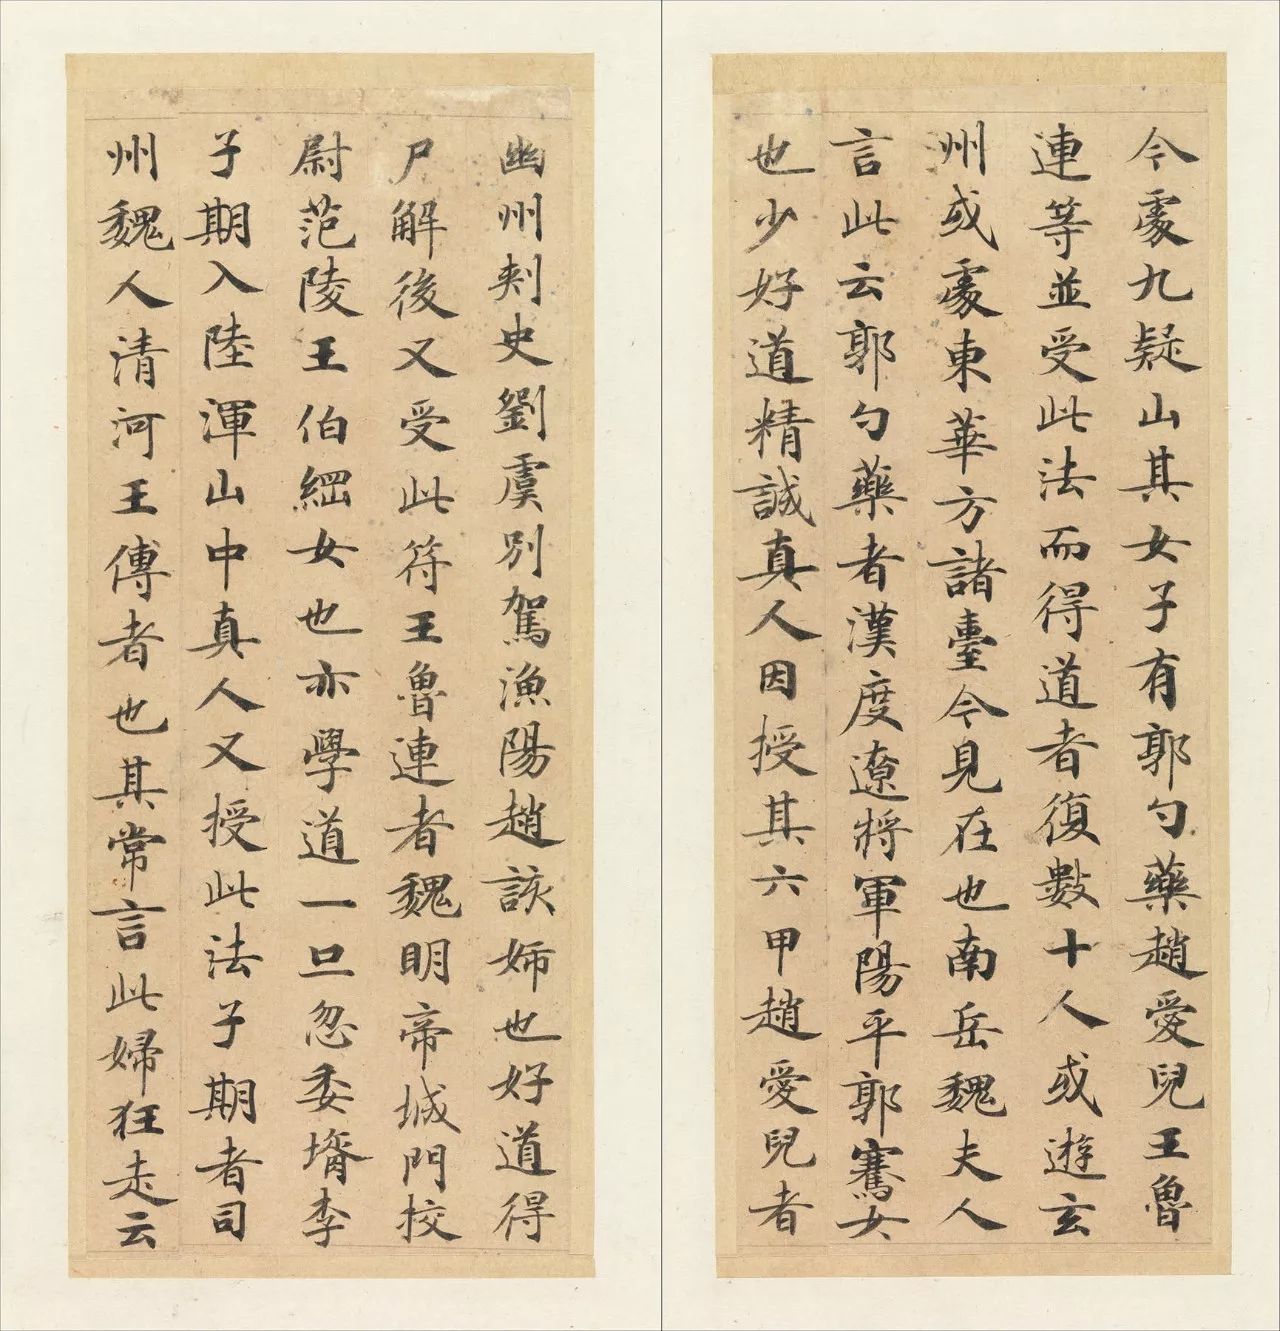 今處九疑山其女子有郭勺藥趙愛兒王魯
連等並受此法而得道者復數十人或遊玄
州或處東華方諸臺今見在也南岳魏夫人
言此云郭勺藥者漢度遼將軍陽平郭騫女
也少好道精誠真人因授其六甲趙愛兒者
幽州刾史劉虞別駕漁陽趙該姉也好道得
尸解後又受此符王魯連者魏明帝城門校
尉范陵王伯綱女也亦學道一旦忽委壻李
子期入陸渾山中真人又授此法子期者司
州魏人清河王傅者也其常言此婦狂走云